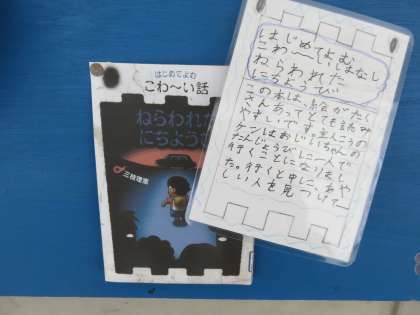 はじめてよむ
こわ〜い話
ねらわれた
にちようび
三枝理恵
はじめてよむ
こわ〜いはなし
ねらわれた
にちようび
この本は、絵がたく
さんあってとても読み
やすいです。主人こうの
ケンはおじいちゃんの
たんじょうびに一人で
行くことになりまし
た。行くと中に、あや
しい人を見つけて